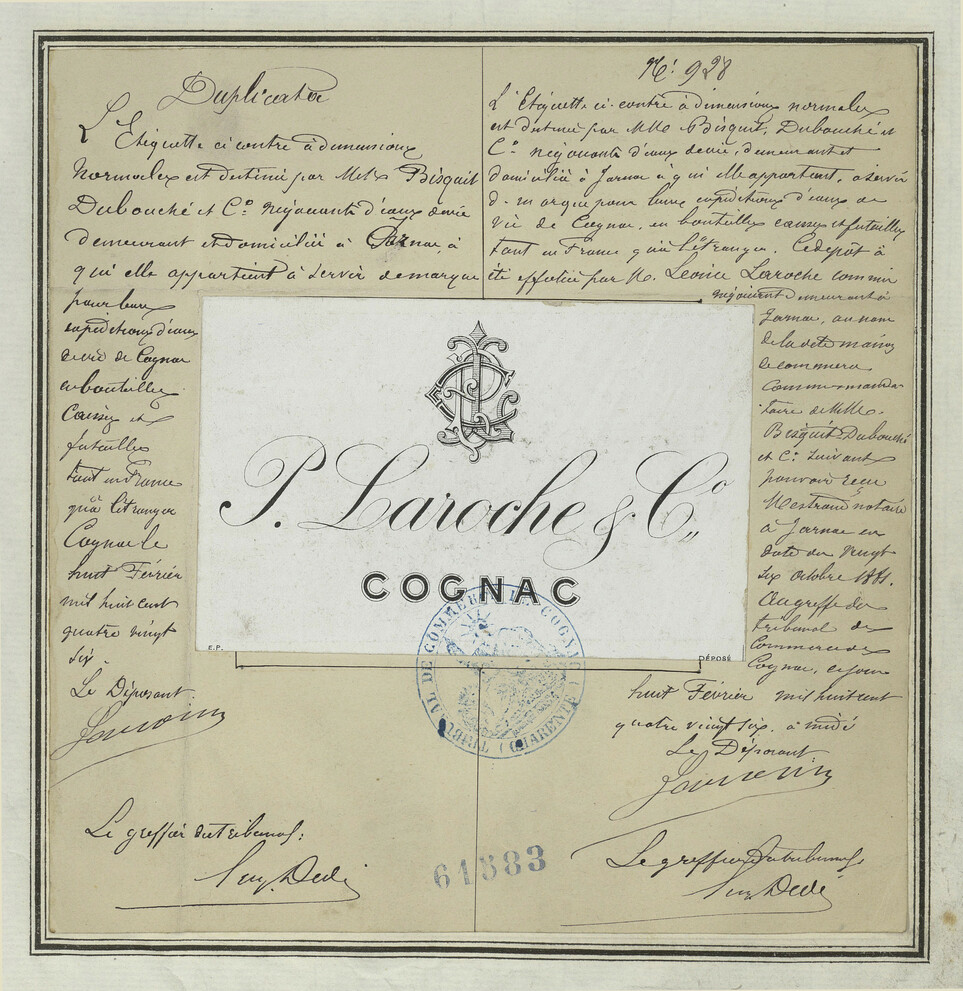 Duplicata
L'Etiquette ci contre à dimensions
Normales est destinée par MM. Bisquit
Dubouché et Co. négociants d'eaux de vie
demeurant et domiciliés à Jarnac, à
qui elle appartient à servir de marque
pour leurs
expéditions d'eaux
de vie de Cognac
en bouteilles
Caisses et
futailles
tant en France
qu'à l'étranger
Cognac le
huit Février
mil huit cent
quatre vingt
six.
Le Déposant
Le greffier du tribunal:
No. 928
L'Etiquette ci-contre à dimensions normales
est destinée par MM. Bisquit, Dubouché et
Co. négociants d'eaux de vie, demeurant et
domicilié à Jarnac à qui elle appartient, à servir
de marque pour leurs expéditions d'eaux de
vie de Cognac, en bouteilles caisses et futailles
tant en France qu'à l'étranger. Ce dépôt à
été effectué par M. Leonce Laroche commis
négociant demeurant à
Jarnac, au nom
de la dite maison
de commerce
comme manda-
taire de MM.
Bisquit Dubouché
et Co. suivant
pouvoir reçu
notaire
à Jarnac en
date du vingt
six octobre
Au greffe du
tribunal de
Commerce de
Cognac, ce jour
huit Février mil huit cent
quatre vingt six. à midi
Le Déposant
Le greffier du tribunal
P. Laroche & Co.
COGNAC
E.P.
DÉPOSÉ
TRIBUNAL DE COMMERCE DE COGNAC (CHARENTE)
61883